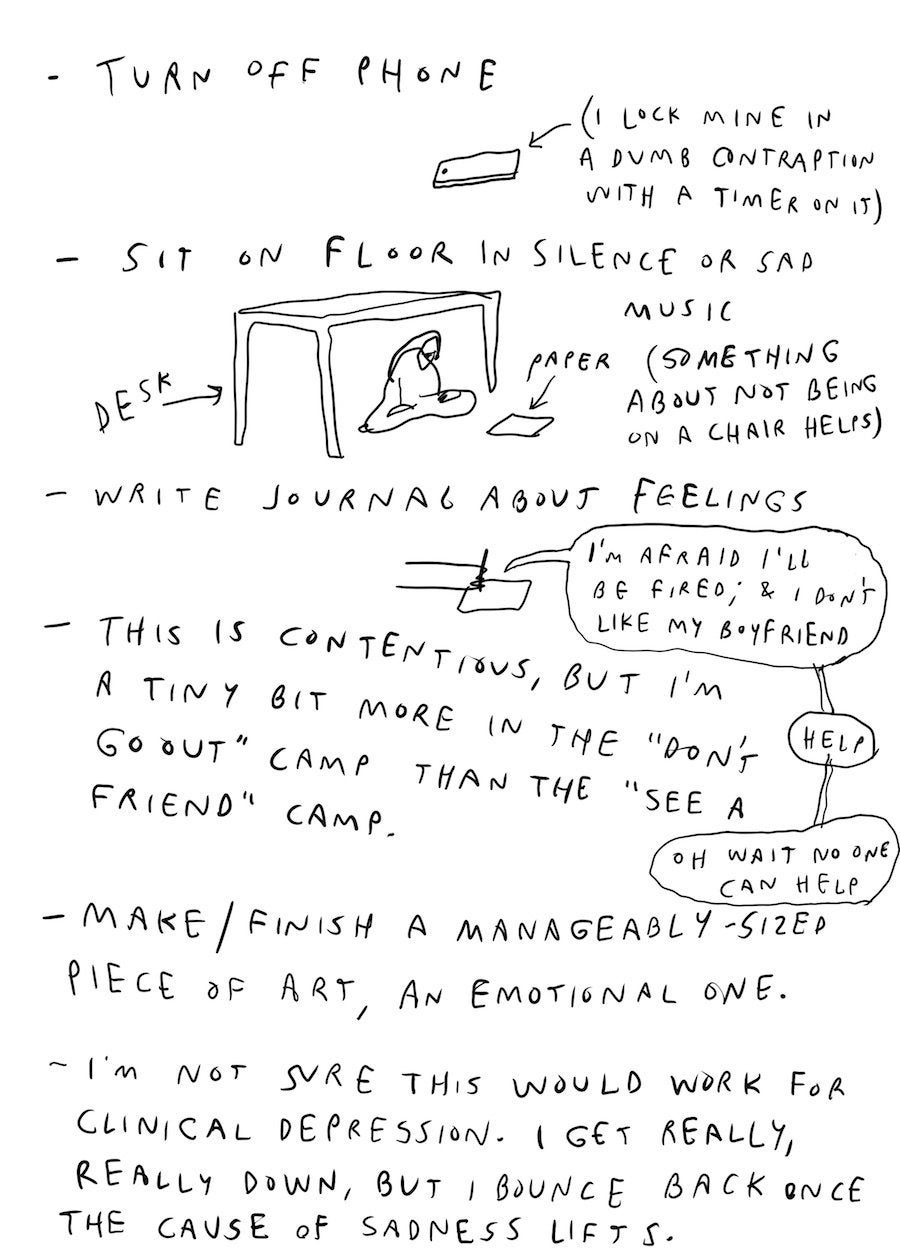 - TURN OFF PHONE
(I LOCK MINE IN
A DUMB CONTRAPTION
WITH A TIMER ON IT)
- SIT ON FLOOR IN SILENCE OR SAD
MUSIC
DESK
PAPER
(SOMETHING
ABOUT NOT BEING
ON A CHAIR HELPS)
- WRITE JOURNAL ABOUT FEELINGS
I'M AFRAID I'LL
BE FIRED; & I DON'T
LIKE MY BOYFRIEND
HELP
OH WAIT NO ONE
CAN HELP
- THIS IS CONTENTIOUS, BUT I'M
A TINY BIT MORE IN THE "DON'T
GO OUT" CAMP THAN THE "SEE A
FRIEND" CAMP.
- MAKE/FINISH A MANAGEABLY-SIZED
PIECE OF ART, AN EMOTIONAL ONE.
- I'M NOT SURE THIS WOULD WORK FOR
CLINICAL DEPRESSION. I GET REALLY,
REALLY DOWN, BUT I BOUNCE BACK ONCE
THE CAUSE OF SADNESS LIFTS.